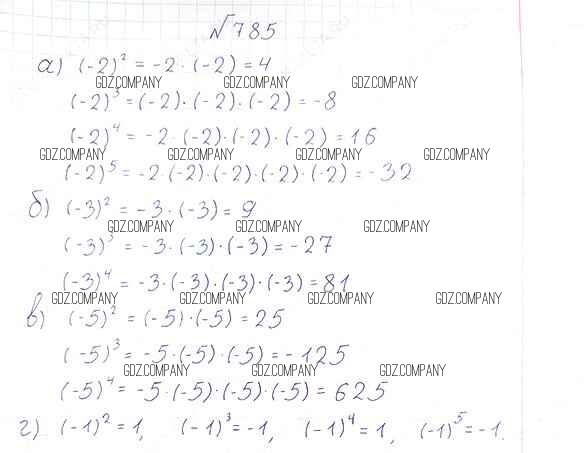 №785
а) (-2)² = -2 · (-2) = 4
GDZ.COMPANY GDZ.COMPANY GDZ.COMPANY
(-2)³ = (-2) · (-2) · (-2) = -8
(-2)⁴ = -2 · (-2) · (-2) · (-2) = 16
GDZ.COMPANY GDZ.COMPANY GDZ.COMPANY GDZ.COMPANY
(-2)⁵ = -2 · (-2) · (-2) · (-2) · (-2) = -32
б) (-3)² = -3 · (-3) = 9
GDZ.COMPANY GDZ.COMPANY GDZ.COMPANY
(-3)³ = -3 · (-3) · (-3) = -27
(-3)⁴ = -3 · (-3) · (-3) · (-3) = 81
GDZ.COMPANY GDZ.COMPANY GDZ.COMPANY GDZ.COMPANY
в) (-5)² = (-5) · (-5) = 25
(-5)³ = -5 · (-5) · (-5) = -125
GDZ.COMPANY GDZ.COMPANY GDZ.COMPANY
(-5)⁴ = -5 · (-5) · (-5) · (-5) = 625
г) (-1)² = 1, (-1)³ = -1, (-1)⁴ = 1, (-1)⁵ = -1.